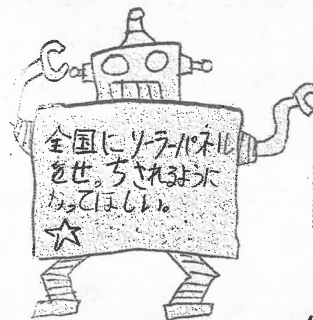 全国にソーラーパネル
をせっちされるように
なってほしい。
☆